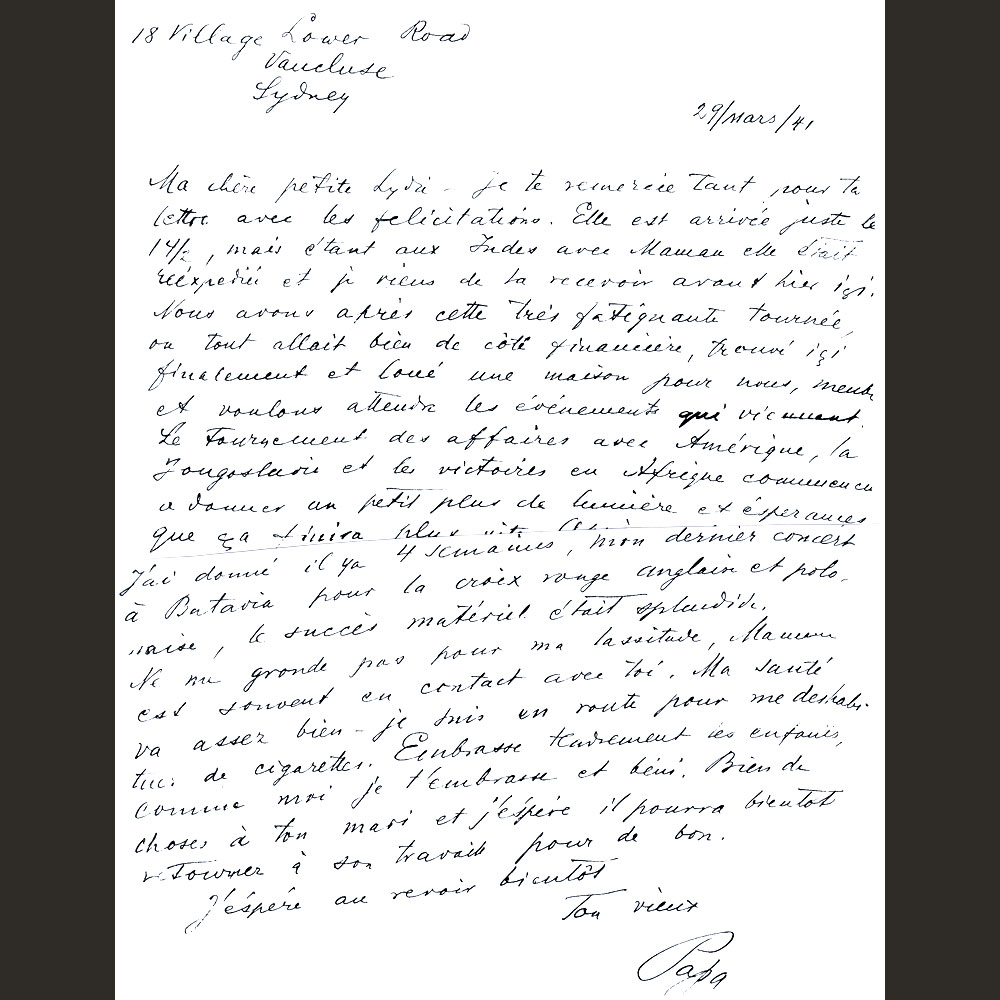 18 Village Lower Road
Vaucluse
Sydney
29/Mars/41
Ma chère petite Lydie - je te remercie tant pour ta
lettre avec les félicitations. Elle est arrivée juste le
14/2, mais étant aux Indes avec Maman elle était
réexpediée et je viens de la recevoir avant hier içi.
Nous avons après cette très fatiguante tournée,
ou tout allait bien de côté financière, trouvé içi
finalement et loué une maison pour nous,
et voulons attendre les événements qui viennent.
Le tournement des affaires avec Amérique, la
Jougoslavie et les victoires en Afrique commencent
a donner un petit plus de lumière et éspérances
que ça finira plus
J'ai donné il ya 4 semaines, mon dernier concert
à Batavia pour la croix rouge anglaise et polo-
naise, le succès matériel était splendide.
Ne me gronde pas pour ma lassitude, Maman
est souvent en contact avec toi. Ma santé
va assez bien - je suis en route pour me deshabi-
tuer de cigarettes. Embrasse tendrement les enfants,
comme moi je t'embrasse et béni. Bien de
choses à ton mari et j'éspére il pourra bientôt
retourner à son travail pour de bon.
J'éspére au revoir bientôt
Ton vieux
Papa